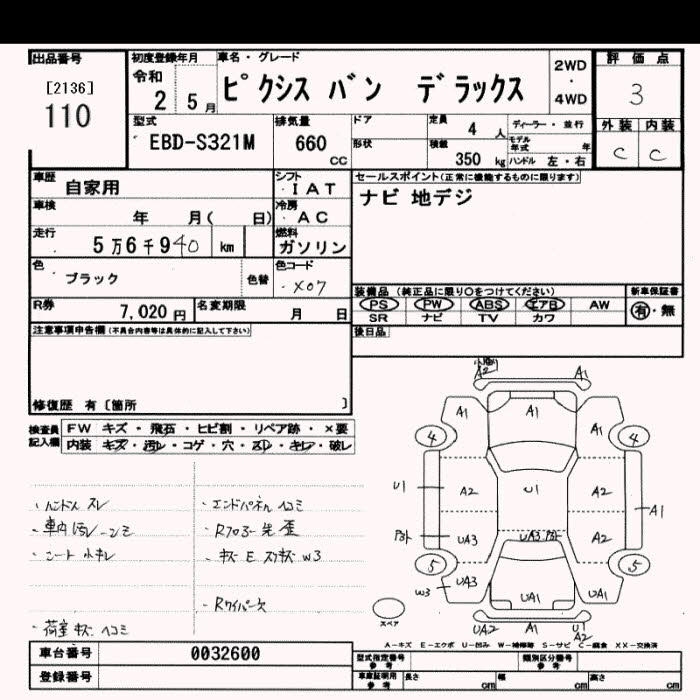 出品番号
[2136]
110
初度登録年月
令和
2 5月
車名・グレード
ピクシス バン デラックス
2WD
・
4WD
評価点
3
外装 内装
C C
型式
EBD-S321M
排気量
660
CC
ドア
形状
定員 4 人
積載 350 kg
ディーラー・並行
モデル年式 年
ハンドル 左・右
車歴
自家用
シフト
IAT
車検
年 月( 日)
冷房
AC
走行
5万6千940 km
燃料
ガソリン
色
ブラック
色替
色コード
X07
R券
7,020円
名変期限
月 日
セールスポイント(正常に機能するものに限ります)
ナビ 地デジ
装備品 (純正品に限り○をつけてください)
PS PW ABS エアB AW
SR ナビ TV カワ
新車保証書
有・無
後日品
注意事項申告欄(不具合内容等は具体的に記入して下さい)
修復歴 有〔箇所 〕
検査員記入欄
FW キズ・飛石・ヒビ割・リペア跡・×要
内装 キズ・汚レ・コゲ・穴・スレ・キレ・破レ
・ハンドル スレ
・車内汚レ シミ
・シート 小キレ
・荷室 キズ ヘコミ
・エンドパネル ヘコミ
・Rフロアー先 歪
・キズ E スリキズ W3
・Rワイパー欠
A2 A1
A1 A1 A1
4 4
U1 A2 U1 A2 A1
UA3 UA3 A2
5 5
W3 UA3 UA1 UA1
UA2 A1 U1 A2
スペア
A-キズ E-エクボ U-凹み W-補修跡 S-サビ C-腐食 XX-交換済
車台番号
0032600
登録番号
型式指定番号
参考
類別区分番号
参考
車庫証明用
参考
長さ cm 幅 cm 高さ cm